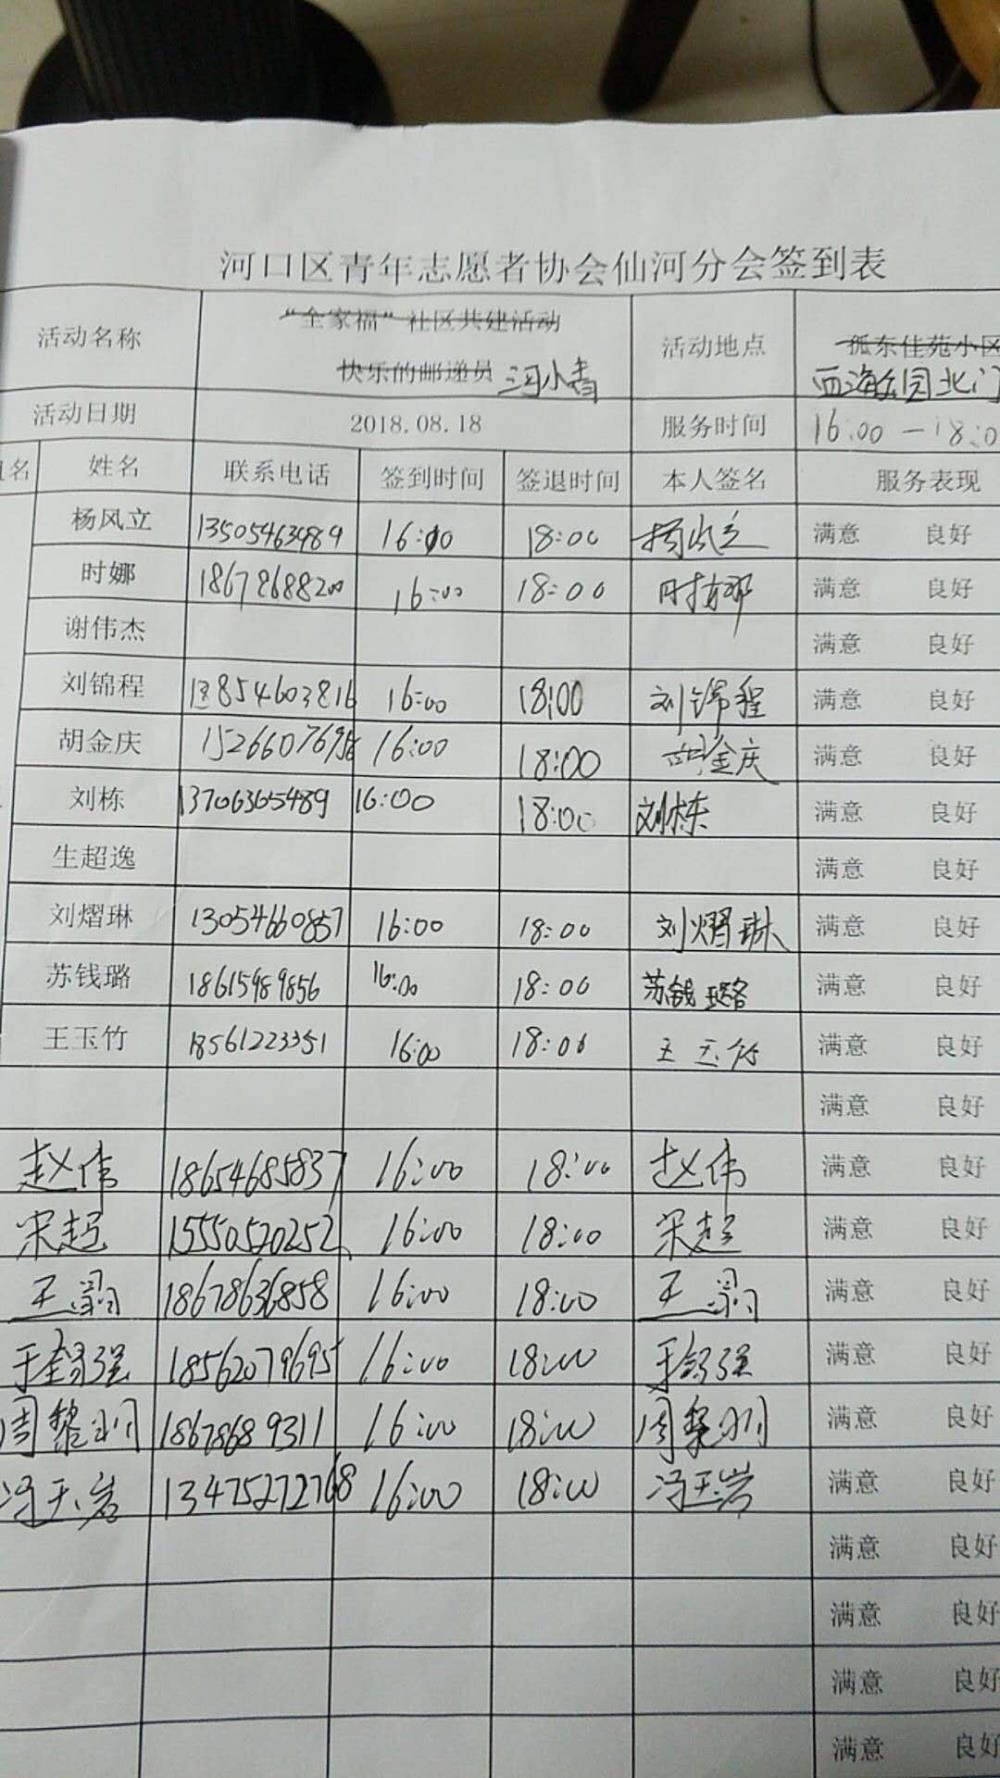 河口区青年志愿者协会仙河分会签到表
活动名称 “全家福”社区共建活动 快乐的邮递员 河小青 活动地点 孤东佳苑小区 西海公园北门
活动日期 2018.08.18 服务时间 16:00 — 18:0
名 姓名 联系电话 签到时间 签退时间 本人签名 服务表现
杨风立 13505463989 16:00 18:00 杨风立 满意 良好
时娜 18678688200 16:00 18:00 时娜 满意 良好
谢伟杰 满意 良好
刘锦程 13854603816 16:00 18:00 刘锦程 满意 良好
胡金庆 15266076956 16:00 18:00 胡金庆 满意 良好
刘栋 13706365489 16:00 18:00 刘栋 满意 良好
生超逸 满意 良好
刘熠琳 13054660857 16:00 18:00 刘熠琳 满意 良好
苏钱璐 18615989856 16:00 18:00 苏钱璐 满意 良好
王玉竹 18561223351 16:00 18:00 王玉竹 满意 良好
满意 良好
赵伟 18654685837 16:00 18:00 赵伟 满意 良好
宋超 15550520252 16:00 18:00 宋超 满意 良好
王 18678636858 16:00 18:00 王 满意 良好
强 18562079695 16:00 18:00 强 满意 良好
周 18678689311 16:00 18:00 周 满意 良好
冯玉岩 13475272768 16:00 18:00 冯玉岩 满意 良好
满意 良好
满意 良好
满意 良好
满意 良好